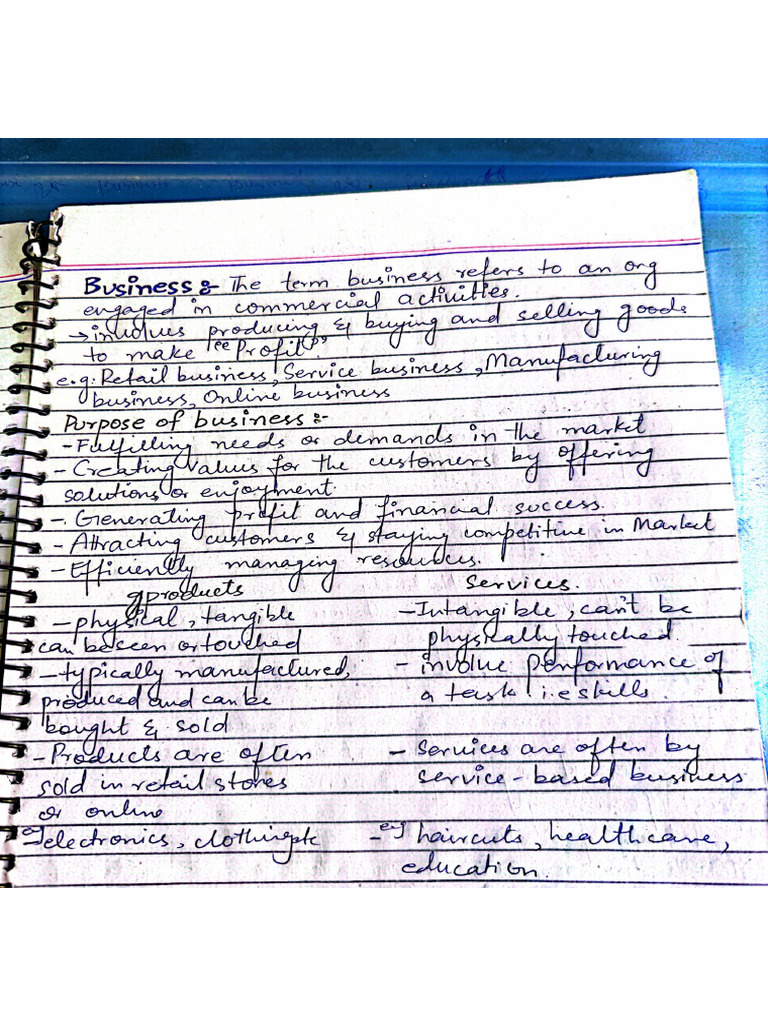 Business :- The term business refers to an org
engaged in commercial activities.
→ involves producing & buying and selling goods
to make "Profit"
e.g: Retail business, Service business, Manufacturing
business, Online business
Purpose of business :-
- Fulfilling needs or demands in the market
- Creating values for the customers by offering
solutions or enjoyment.
- Generating profit and financial success.
- Attracting customers & staying competitive in Market
- Efficiently managing resources.
products services.
- physical, tangible - Intangible, can't be
can be seen or touched physically touched.
- typically manufactured, - involve performance of
produced and can be a task i.e skills.
bought & sold
- Products are often - Services are often by
sold in retail stores service-based business
or online
eg electronics, clothing etc - eg haircuts, healthcare,
education.